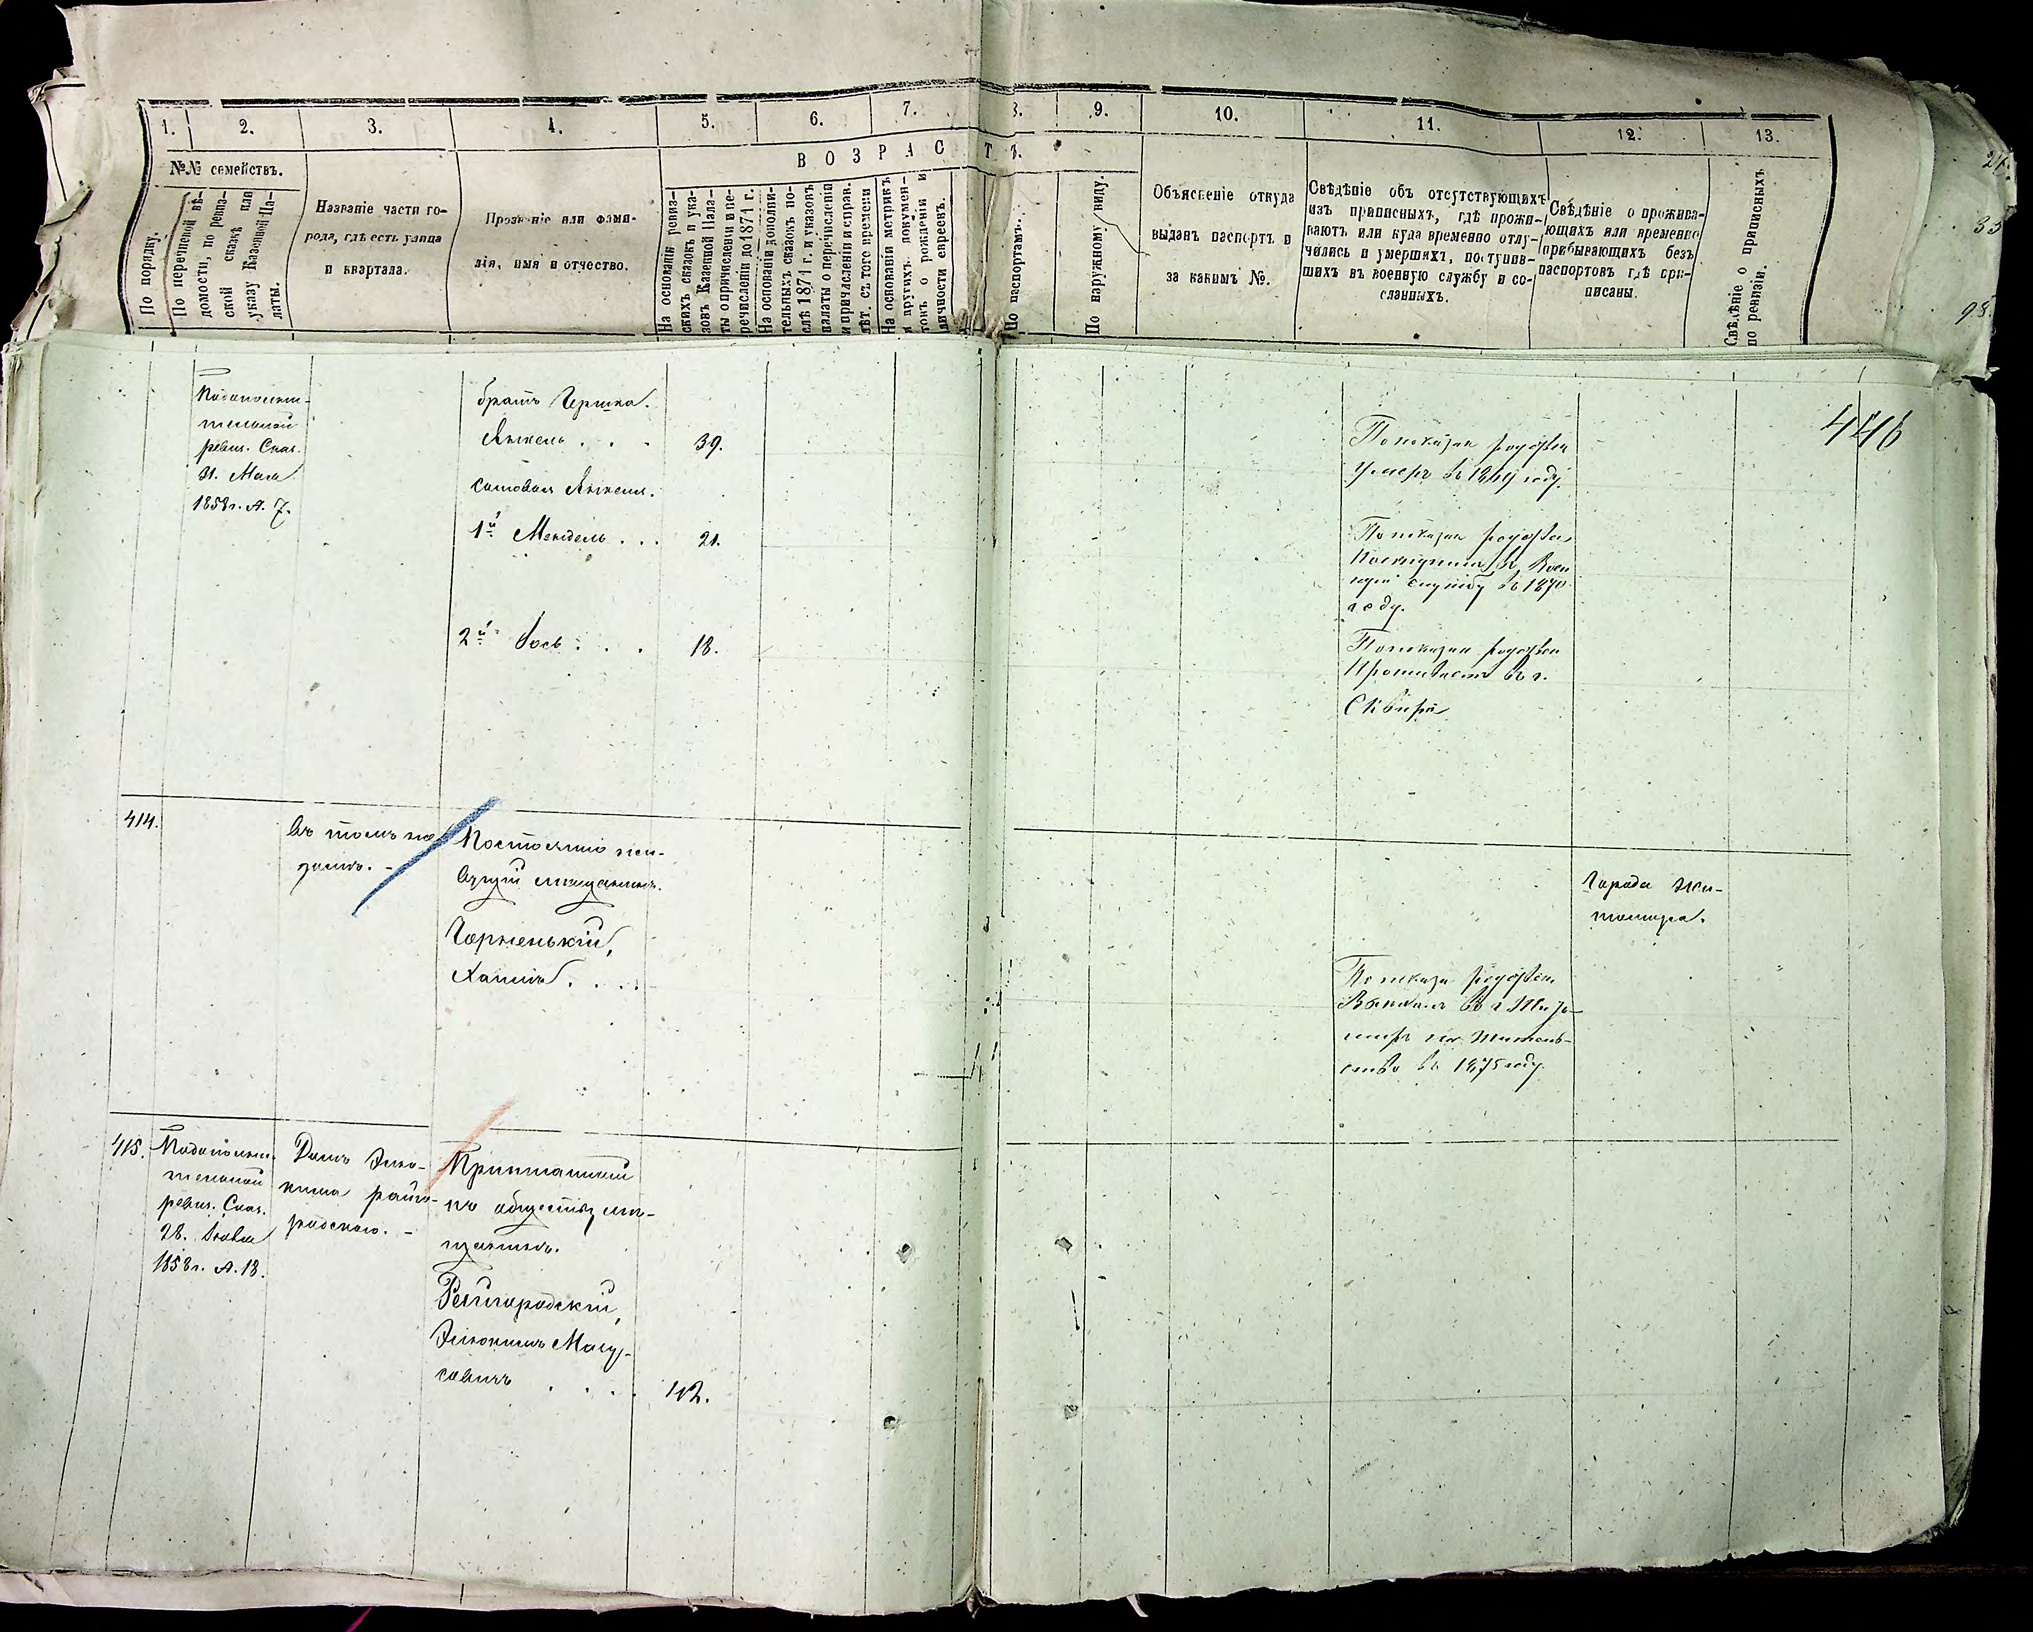 1.
2.
3.
4.
5.
6.
7.
8.
9.
10.
11.
12.
13.
ВОЗРАСТЪ.
№№ семействъ.
По порядку.
По перечневой вѣ-
домости, по ревиз-
ской сказкѣ или
указу Казенной Па-
латы.
Названіе части го-
рода, гдѣ есть улица
и квартала.
Прозваніе или фами-
лія, имя и отчество.
На основаніи ревиз-
скихъ сказокъ и ука-
зовъ Казенной Пала-
ты о причисленіи и пе-
речисленіи до 1871 г.
На основаніи дополни-
тельныхъ сказокъ по-
слѣ 1871 г. и указовъ
палаты о перечисленіи
и причисленіи и справ.
лѣт. съ того времени
На основаніи метрикъ
и другихъ докумен-
товъ о рожденіи и
личности евреевъ.
По паспортамъ.
По наружному виду.
Объясненіе откуда
выданъ паспортъ и
за какимъ №.
Свѣдѣніе объ отсутствующихъ
изъ приписныхъ, гдѣ прожи-
ваютъ или куда временно отлу-
чились и умершихъ, поступив-
шихъ въ военную службу и со-
сланныхъ.
Свѣдѣніе о прожива-
ющихъ или временно
прибывающихъ безъ
паспортовъ гдѣ при-
писаны.
Свѣдѣніе о приписныхъ
по ревизіи.
446
Подополни-
тельной
ревиз. Сказ.
31. Мая
1858 г. А. 7.
братъ Гершка.
Янкель . . .
39.
сыновья Янкеля.
1й Мендель . . .
21.
2й Іось . . .
18.
Показан родствен
умеръ въ 1869 году.
Показан родствен
Поступилъ въ Воен
ную службу въ 1870
году.
Показан родствен
Проживаетъ въ г.
Сквирѣ
414.
Въ томъ же
домѣ. -
Постоянно жи-
вущій мѣщанинъ.
Чорненькій,
Хаимъ . . . .
Города Жи-
томира.
Показан родствен
въ г. Жито-
миръ на житель-
ство въ 1875 году.
415.
Подополни-
тельной
ревиз. Сказ.
28.
1858 г. А. 18.
Домъ Элио-
кима райго-
родскаго. -
къ обществу мѣ-
щанинъ.
Райгородскій,
Элиокимъ Мошу-
совичъ . . . .
42.